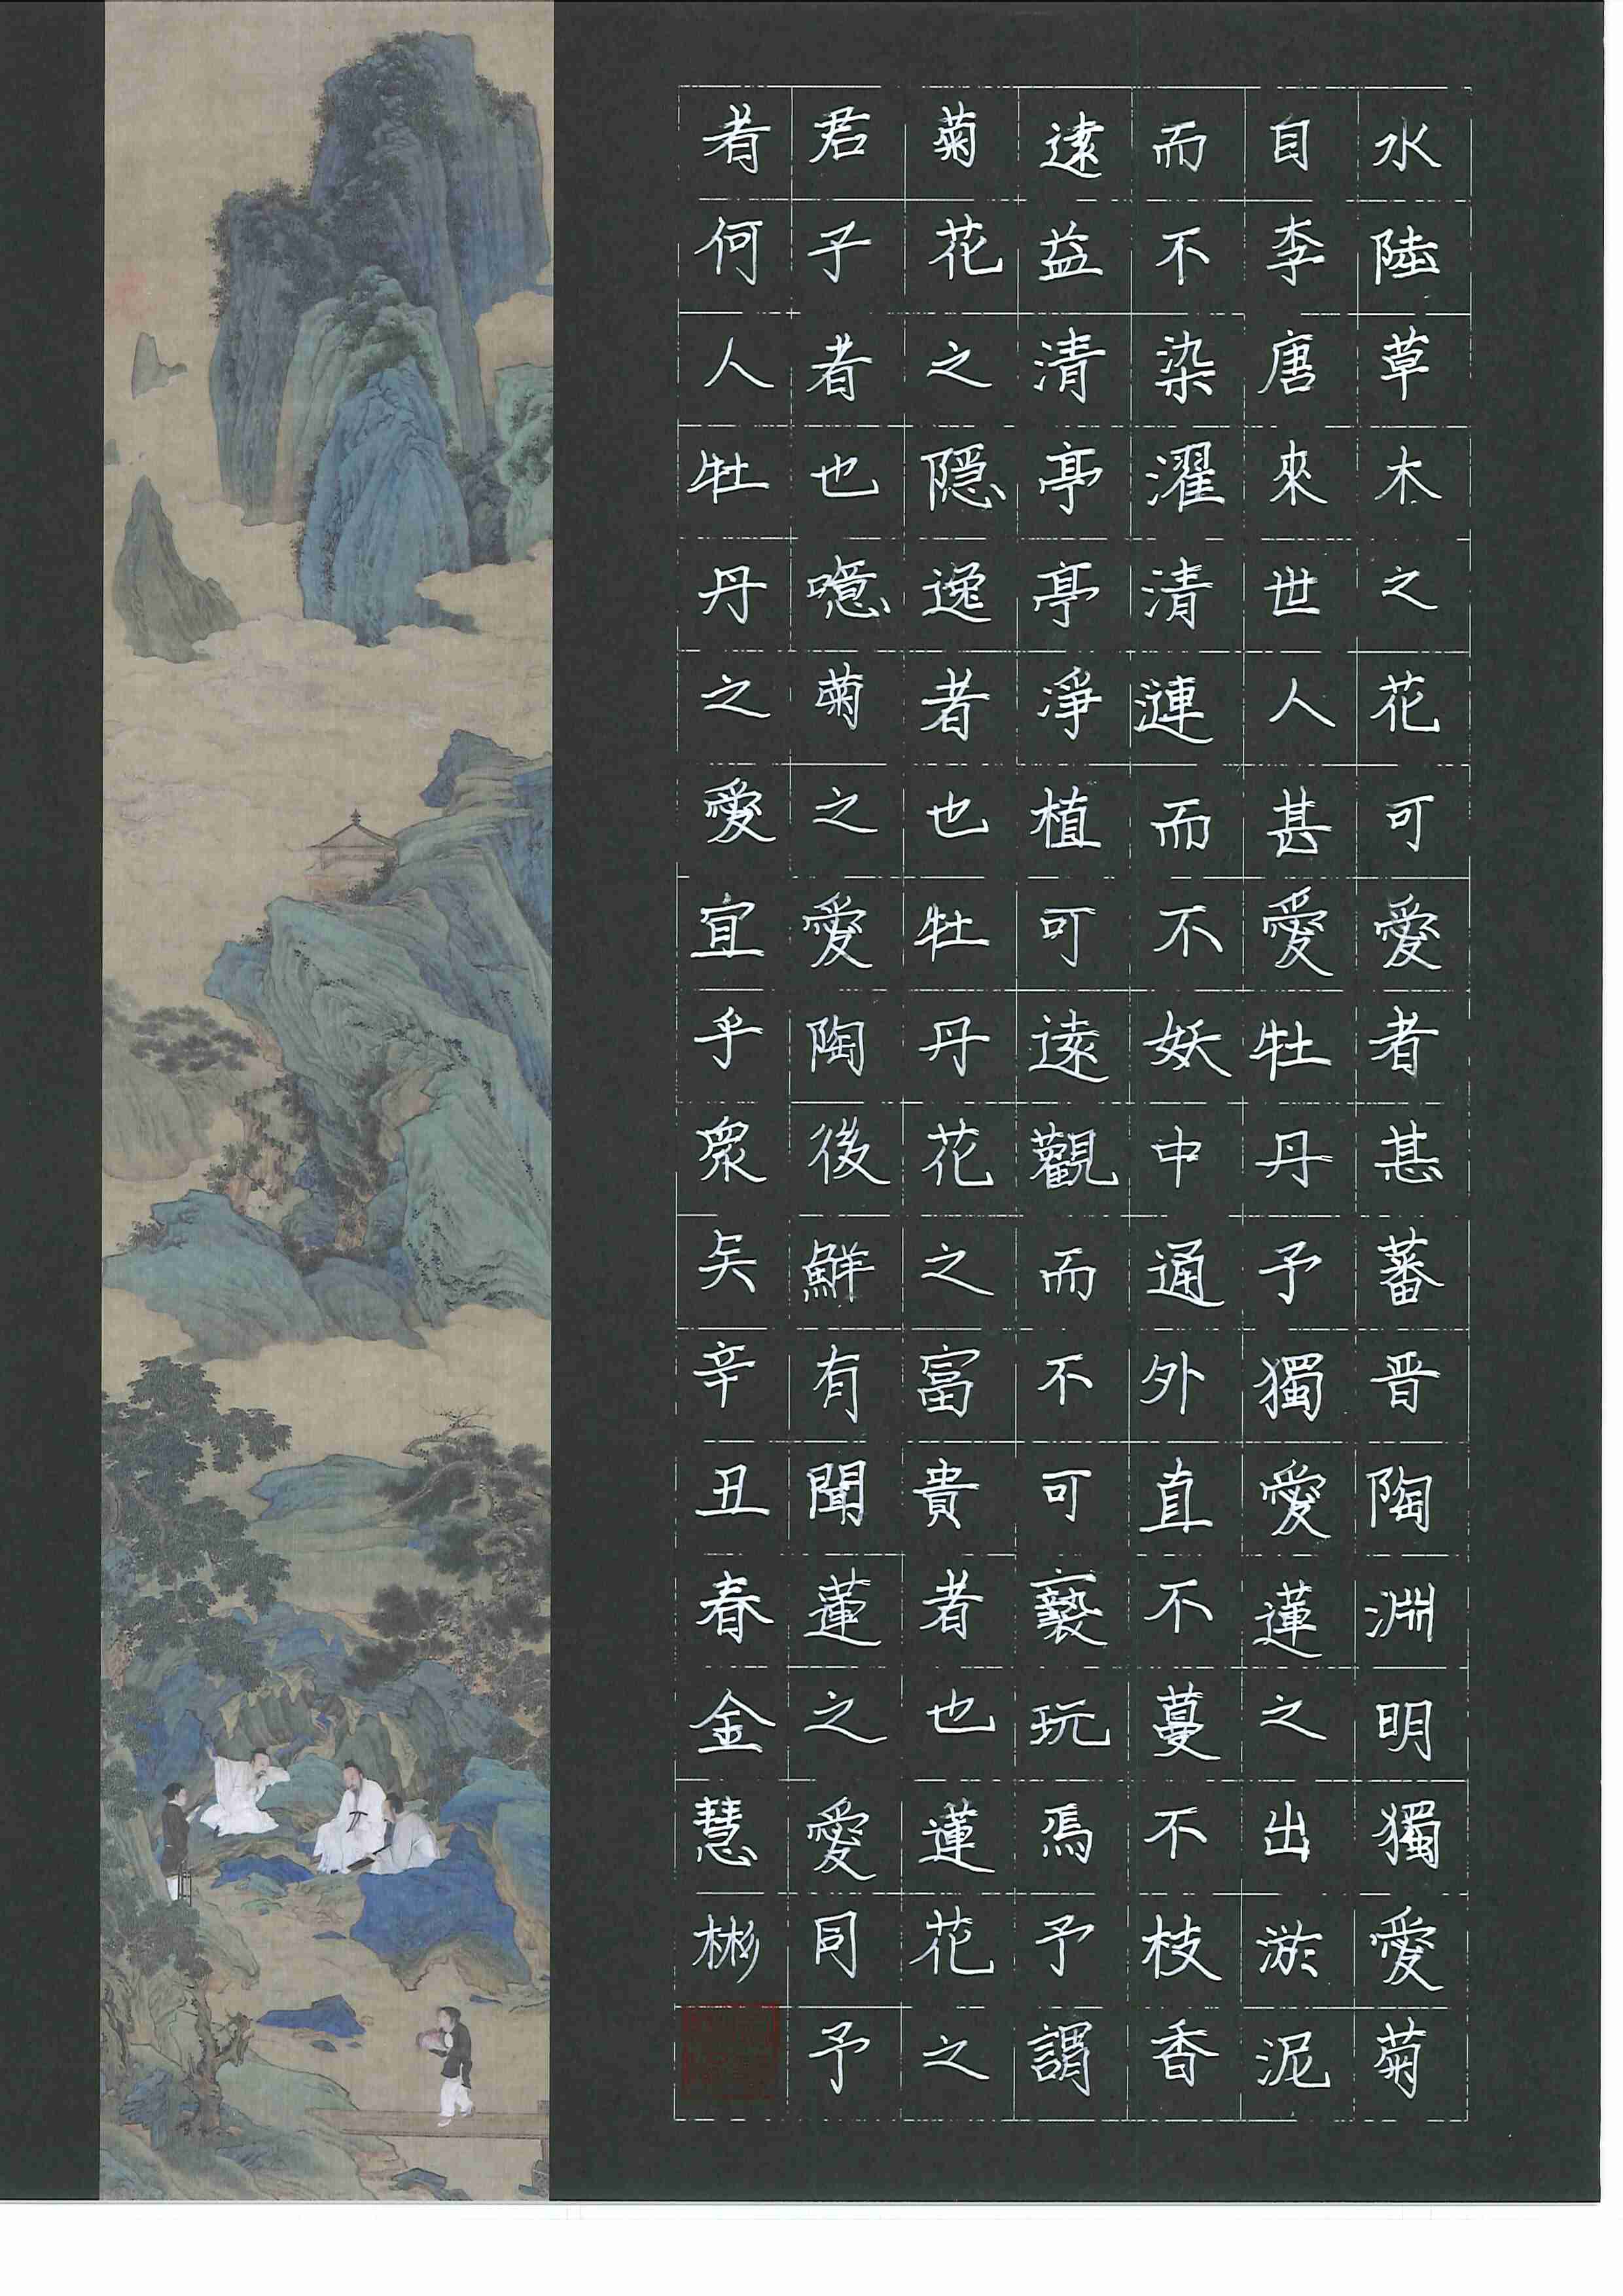 水陸草木之花可愛者甚蕃晋陶淵明獨愛菊
自李唐來世人甚愛牡丹予獨愛蓮之出淤泥
而不染濯清漣而不妖中通外直不蔓不枝香
遠益清亭亭淨植可遠觀而不可褻玩焉予謂
菊花之隱逸者也牡丹花之富貴者也蓮花之
君子者也噫菊之愛陶後鮮有聞蓮之愛同予
者何人牡丹之愛宜乎眾矣辛丑春金慧彬